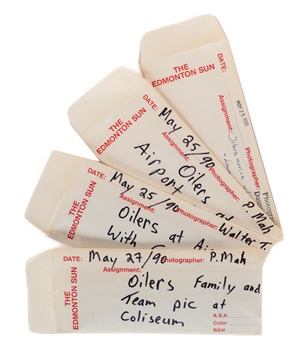 THE
EDMONTON SUN
DATE:
MAY 25 1990
Assignment:
Photographer:
THE
EDMONTON SUN
DATE: May 25/90
Assignment: Oilers
Photographer: P. Mah
Airport
THE
EDMONTON SUN
DATE: May 25/90
Assignment: Photographer: Walter T.
Oilers at
With
THE
EDMONTON SUN
DATE: May 27/90 Photographer: P. Mah
Assignment:
Oilers Family and
Team pic at
Coliseum
A.S.A.
Color
B&W